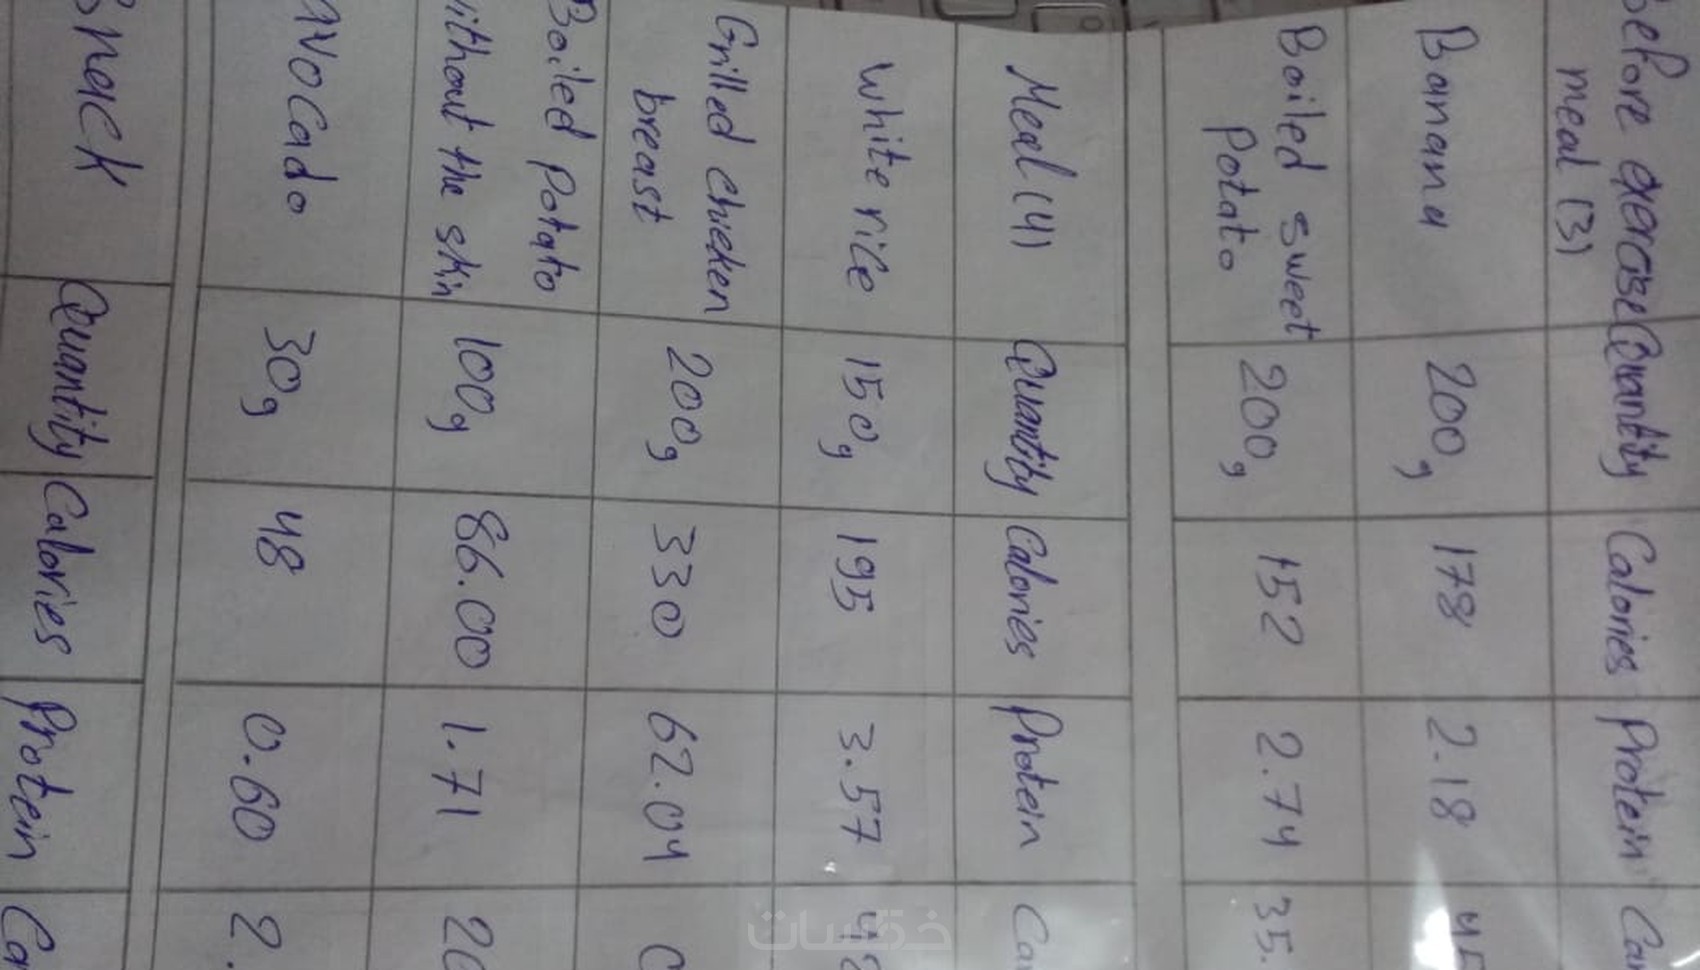 before exercise Quantity Calories Protein Ca
meal (3)
Banana 200g 178 2.18 45
Boiled sweet 200g 152 2.74 35.
Potato
Meal (4) Quantity Calories Protein Ca
White rice 150g 195 3.57 42
Grilled chicken 200g 330 62.04 0
breast
Boiled Potato 100g 86.00 1.71 20
without the skin
Avocado 30g 48 0.60 2.
Snack Quantity Calories Protein Ca
خمسات